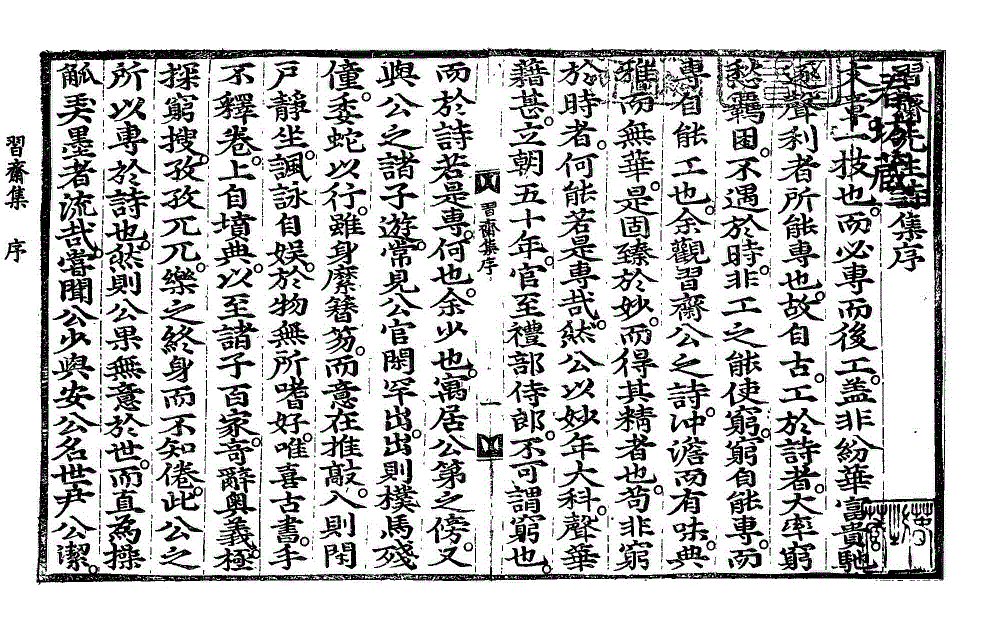 習齋先生詩集序
文章一技也而必專而後工盖非紛華富貴馳
逐聲利者所能專也故自古工於詩者大率窮
愁羈困不遇於時非工之能使窮窮自能專而
專自能工也余觀習齋公之詩冲澹而有味典
雅而無華是固臻於妙而得其精者也苟非窮
於時者何能若是專哉然公以妙年大科聲華
藉甚立朝五十年官至禮部侍郎不可謂窮也
習齋集序
一
而於詩若是專何也余少也寓居公第之傍又
與公之諸子遊常見公官閑罕出出則樸馬殘
僮委蛇以行雖身縻簪笏而意在推敲入則閉
戶靜坐諷詠自娛於物無所嗜好唯喜古書手
不釋卷上自墳典以至諸子百家奇辭奧義極
探窮搜孜孜兀兀樂之終身而不知倦此公之
所以專於詩也然則公果無意於世而直為操
觚弄墨者流哉嘗聞公少與安公名世尹公潔
習齋集 序